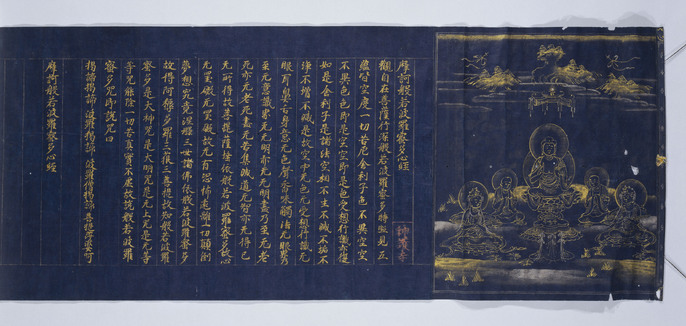 摩訶般若波羅蜜多心經
觀自在菩薩行深般若波羅蜜多時照見五
蘊皆空度一切苦厄舍利子色不異空空
不異色色即是空空即是色受想行識亦復
如是舍利子是諸法空相不生不滅不垢不
淨不增不減是故空中无色无受想行識无
眼耳鼻舌身意无色聲香味觸法无眼界乃
至无意識界无无明亦无无明盡乃至无老
死亦无老死盡无苦集滅道无智亦无得以
无所得故菩提薩埵依般若波羅蜜多故心
无罣礙无罣礙故无有恐怖遠離一切顛倒
夢想究竟涅槃三世諸佛依般若波羅蜜多
故得阿耨多羅三藐三菩提故知般若波羅
蜜多是大神咒是大明咒是无上咒是无等
等咒能除一切苦真實不虛故說般若波羅
蜜多咒即說咒曰
揭諦揭諦 波羅揭諦 波羅僧揭諦 菩提薩婆訶
摩訶般若波羅蜜多心經
神護寺